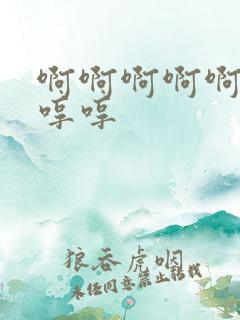 啊啊啊啊啊
哼哼
狼吞虎咽
未经同意禁止转载